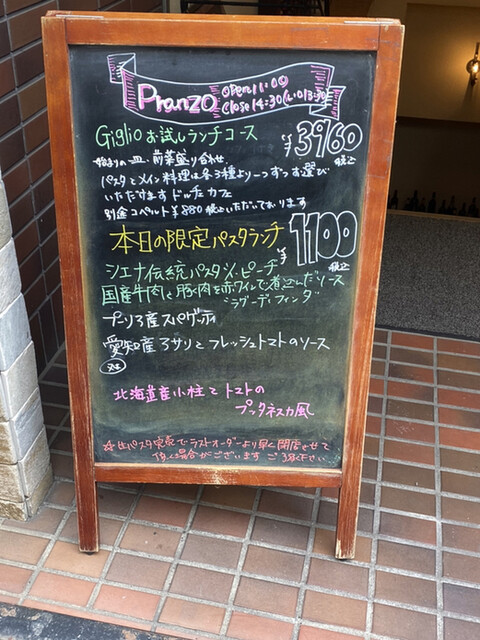 Pranzo
OPEN 11:00
Close 14:30 (L.O 13:30)
Giglio お試しランチコース
¥3960 税込
始まりの一皿、前菜盛り合わせ
パスタとメイン料理は各3種より一つずつお選び
いただけます ドルチェ カフェ
別途コペルト¥880税込いただいております
本日の限定パスタランチ
¥1100 税込
シエナ伝統パスタ"ピーチ"
国産牛肉と豚肉を赤ワインで煮込んだソース
"ラグーディフィンタ"
プーリア産スパゲッティ
愛知産アサリとフレッシュトマトのソース
北海道産小柱とトマトの
プッタネスカ風
☆生パスタ完売でラストオーダーより早く閉店させて
頂く場合がございます ご了承ください